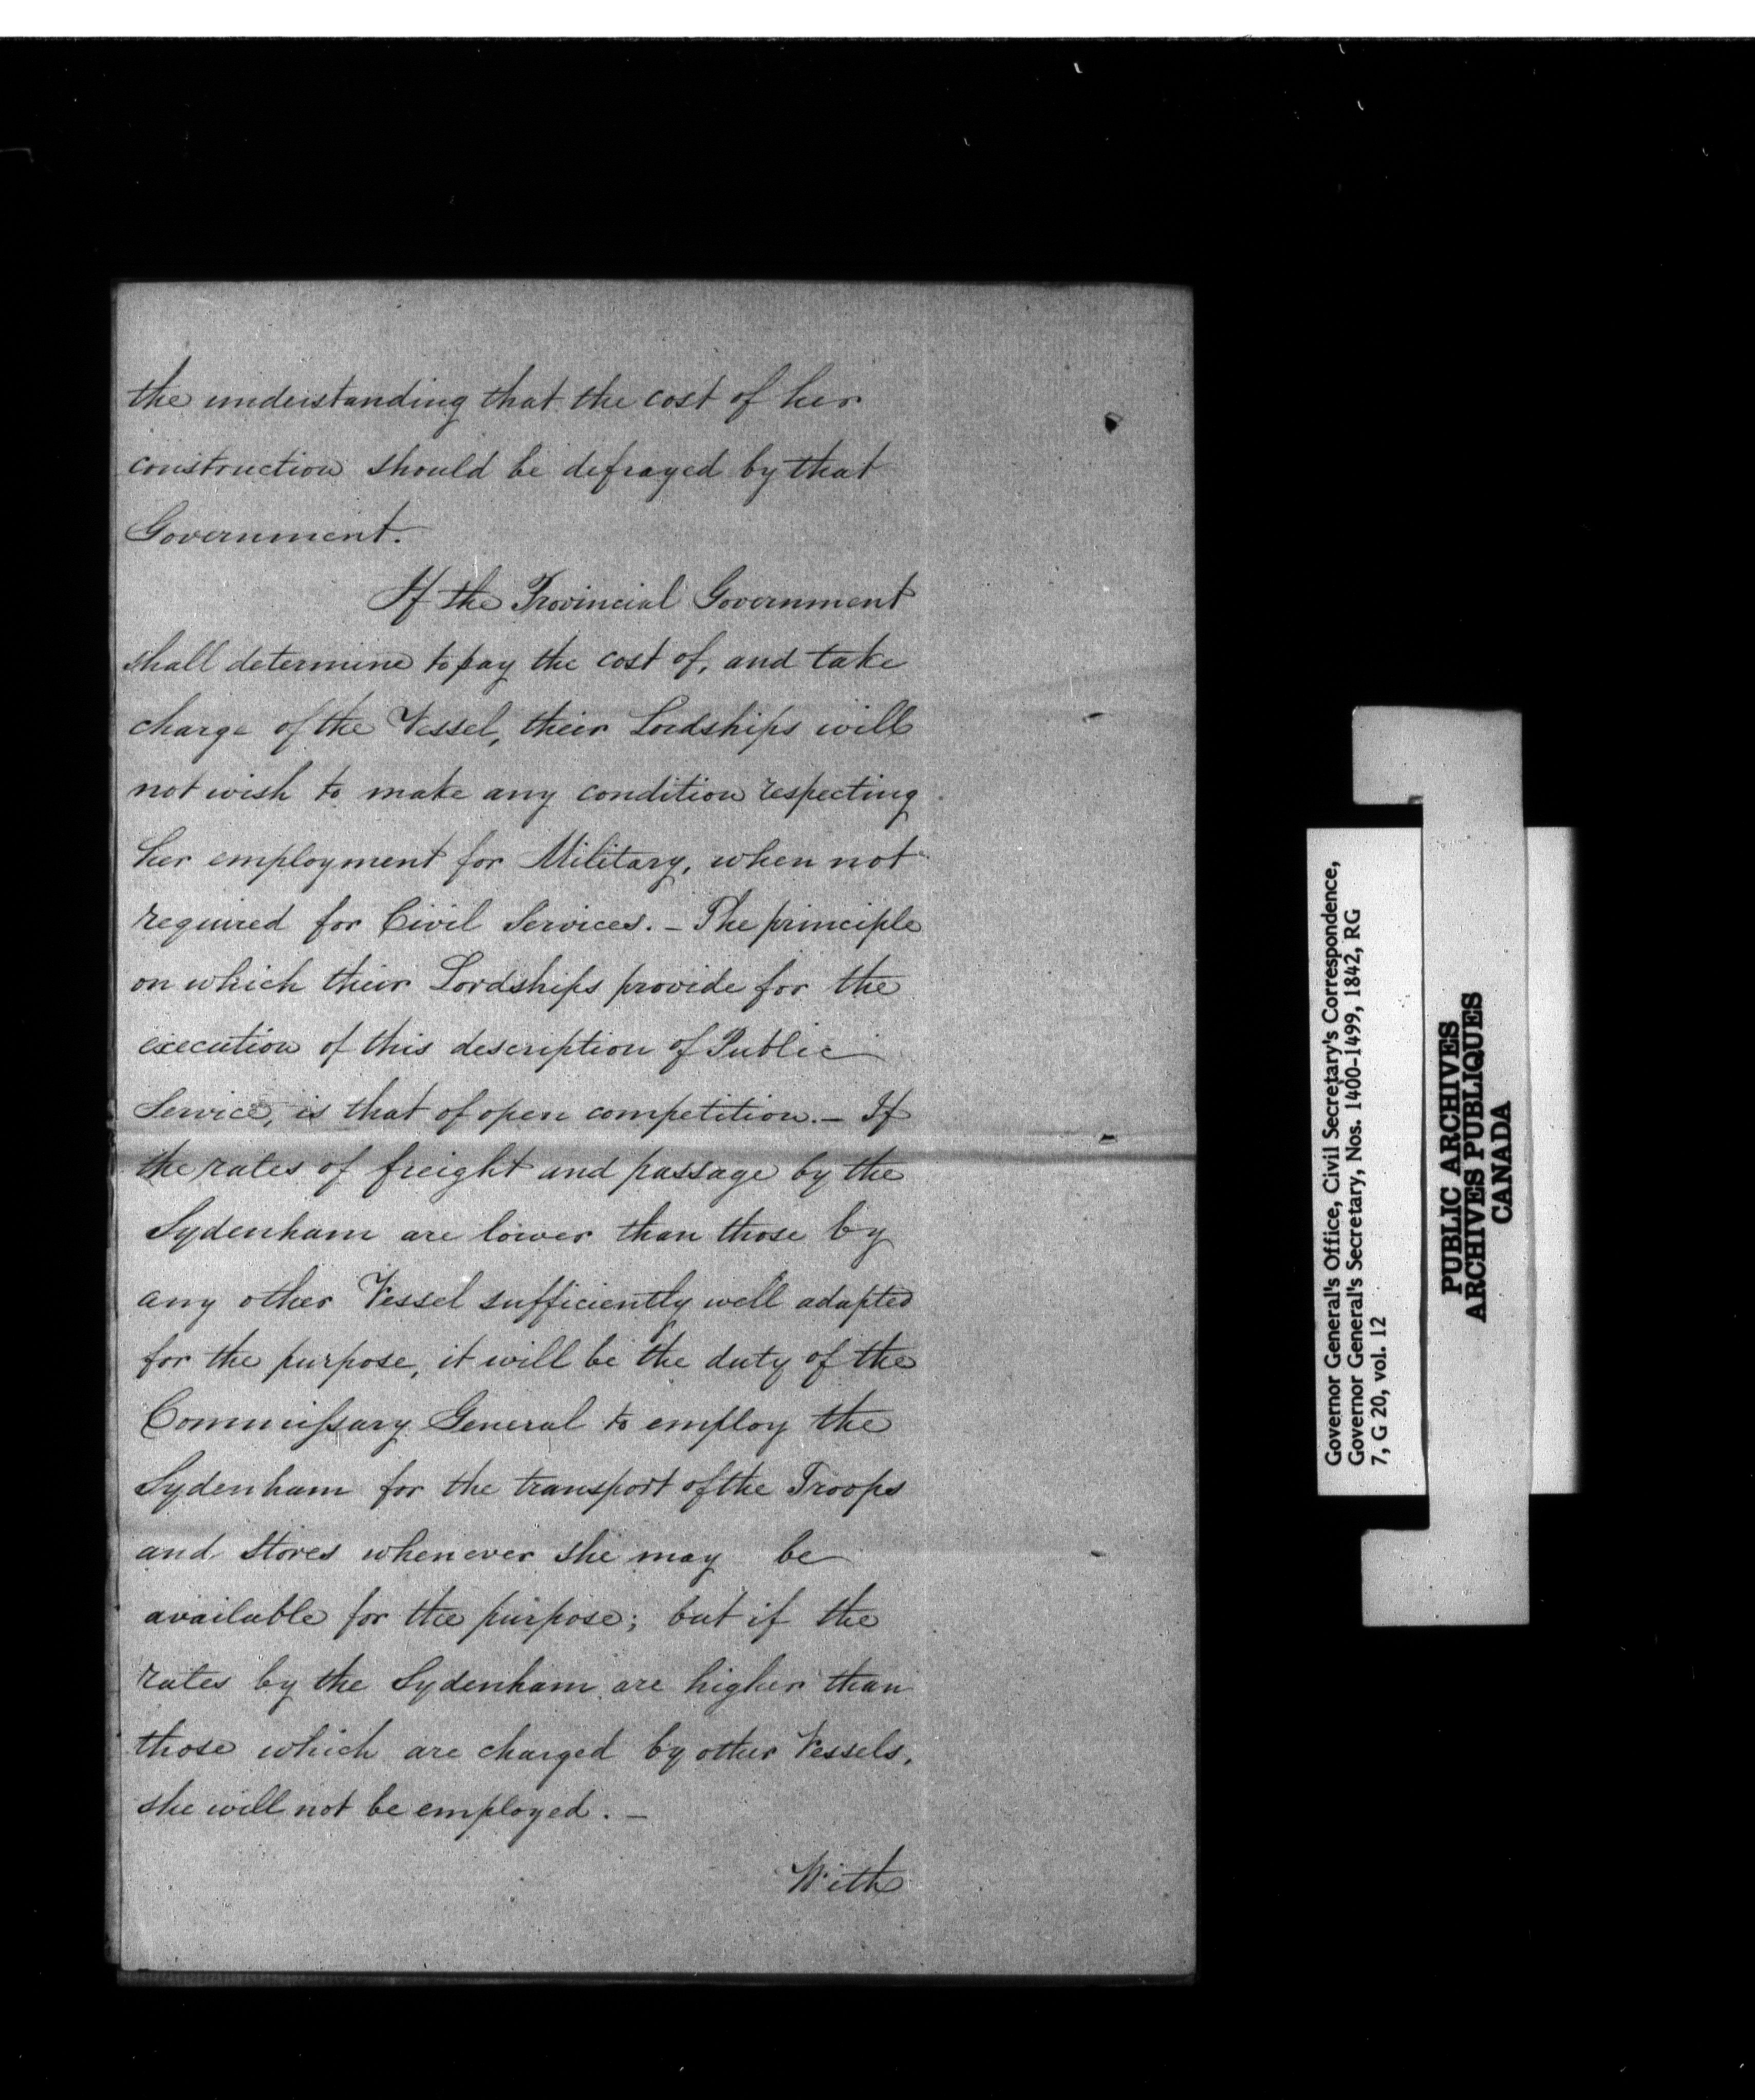 the understanding that the cost of her
construction should be defrayed by that
Government.
If the Provincial Government
shall determine to pay the cost of, and take
charge of the Vessel, their Lordships will
not wish to make any condition respecting
her employment for Military, when not
required for Civil Services. - The principle
on which their Lordships provide for the
execution of this description of Public
Service, is that of open competition. - If
the rates of freight and passage by the
Sydenham are lower than those by
any other Vessel sufficiently well adapted
for the purpose, it will be the duty of the
Commissary General to employ the
Sydenham for the transport of the Troops
and Stores whenever she may be
available for the purpose; but if the
rates by the Sydenham are higher than
those which are charged by other Vessels,
she will not be employed. -
With
Governor General's Office, Civil Secretary's Correspondence,
Governor General's Secretary, Nos. 1400-1499, 1842, RG
7, G 20, vol. 12
PUBLIC ARCHIVES
ARCHIVES PUBLIQUES
CANADA